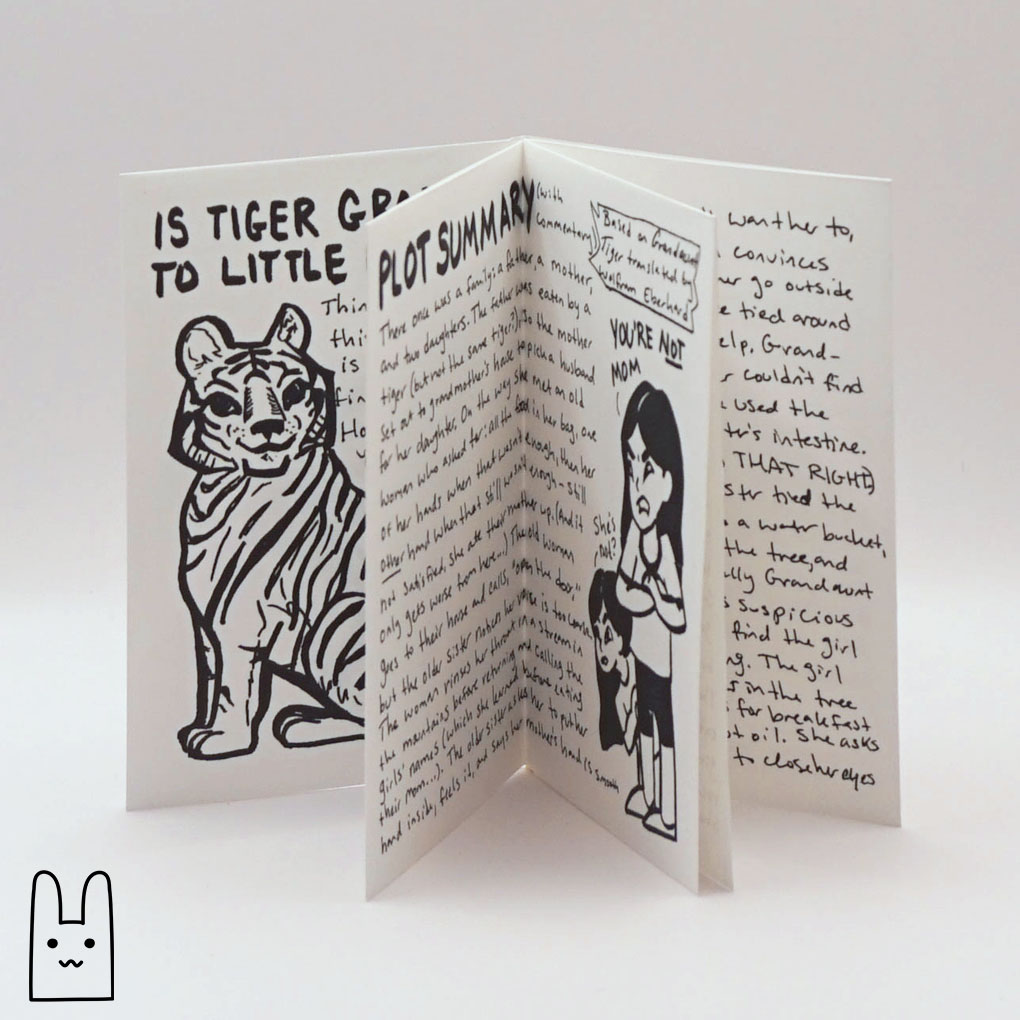 IS TIGER GRA
TO LITTLE
Thin
thi
is
fin
Ho
PLOT SUMMARY (with
commentary)
There once was a family: a father, a mother,
and two daughters. The father was eaten by a
tiger (but not the same tiger?), So the mother
set out to grandmother's house to pick a husband
for her daughter. On the way she met an old
woman who asked for: all the food in her bag, one
of her hands when that wasn't enough, then her
other hand when that still wasn't enough - still
not satisfied, she ate their mother up. (And it
only gets worse from here...) The old woman
goes to their house and calls, "open the door,"
but the older sister notices her voice is too coarse.
The woman rinses her throat in a stream in
the mountains before returning and calling the
girls' names (which she learned before eating
their mom...). The older sister asks her to put her
hand inside, feels it, and says her mother's hand is smooth
Based on Grandaunt
Tiger translated by
Wolfram Eberhard
YOU'RE NOT
MOM
She's
not?
want her to,
convinces
go outside
tied around
elp. Grand-
couldn't find
used the
ter's intestine.
THAT RIGHT)
tied the
a water bucket,
the tree, and
lly Grandaunt
suspicious
find the girl
ng. The girl
in the tree
for breakfast
oil. She asks
to close her eyes